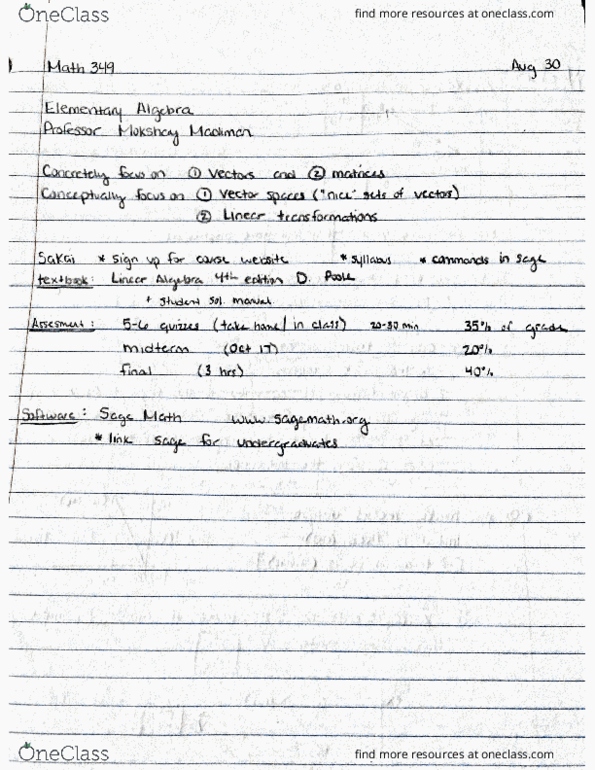 OneClass find more resources at oneclass.com
Math 349 Aug 30
Elementary Algebra
Professor Mokshay Madiman
Concretely focus on ① Vectors and ② matrices
Conceptually focus on ① Vector spaces ("nice" sets of vectors)
② Linear transformations
Sakai * sign up for course website * syllabus * commands in sage
textbook: Linear Algebra 4th edition D. Poole
+ student sol. manual
Assesment: 5-6 quizzes (take home/ in class) 20-30 min 35% of grade
midterm (Oct 17) 20%
final (3 hrs) 40%
Software: Sage Math www.sagemath.org
* link sage for undergraduates
OneClass find more resources at oneclass.com